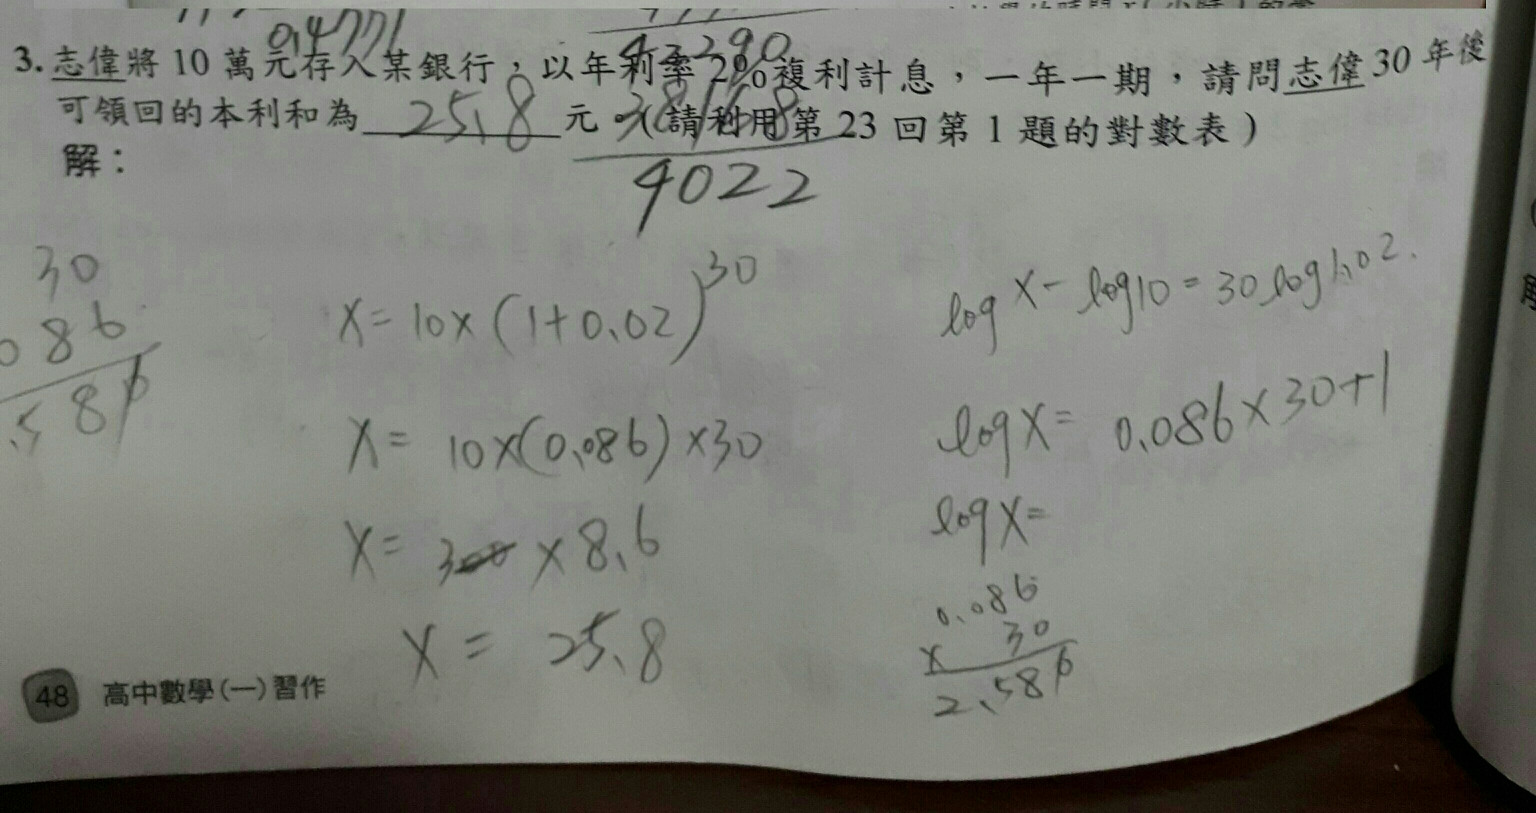 0.4771
4 2290
3. 志偉將 10 萬元存入某銀行，以年利率 2% 複利計息，一年一期，請問志偉 30 年後
可領回的本利和為 25.8 元。（請利用第 23 回第 1 題的對數表）
解：
4022
30
086
.58
x = 10x (1+0.02)^30
x = 10x(0.086) x30
x = x 8.6
x = 25.8
log x - log10 = 30 log1.02
log x = 0.086 x 30+1
log x =
0.086
x 30
2.58
48 高中數學(一)習作